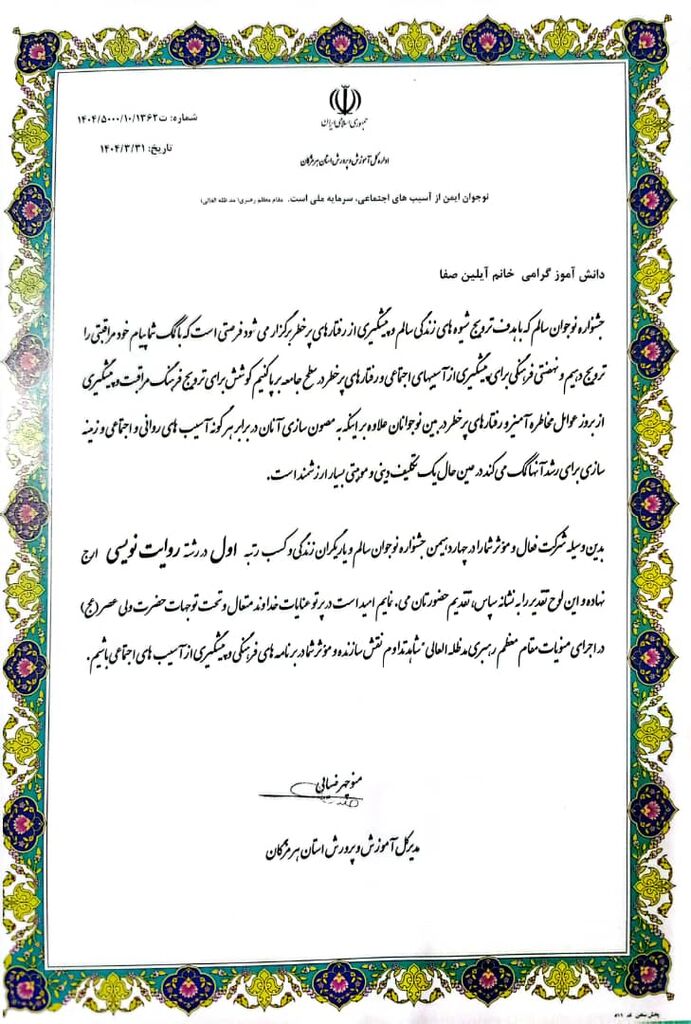 جمهوری اسلامی ایران
شماره: ت۱۴۰۴/۵۰۰۰/۱۰/۱۳۶۲
تاریخ: ۱۴۰۴/۳/۳۱
اداره کل آموزش و پرورش استان هرمزگان
نوجوان ایمن از آسیب های اجتماعی، سرمایه ملی است. مقام معظم رهبری( مد ظله العالی)
دانش آموز گرامی خانم آیلین صفا
جشنواره نوجوان سالم که با هدف ترویج شیوه های زندگی سالم و پیشگیری از رفتارهای پرخطر برگزار می شود فرصتی است که با کمک شما پیام خود مراقبتی را
ترویج دهیم و نهضتی فرهنگی برای پیشگیری از آسیبهای اجتماعی و رفتارهای پرخطر در سطح جامعه برپا کنیم کوشش برای ترویج فرهنگ مراقبت و پیشگیری
از بروز عوامل مخاطره آمیز و رفتارهای پرخطر در بین نوجوانان علاوه بر اینکه به مصون سازی آنان در برابر هر گونه آسیب های روانی و اجتماعی و زمینه
سازی برای رشد آنها کمک می کند در عین حال یک تکلیف دینی و موهبتی بسیار ارزشمند است.
بدین وسیله شرکت فعال و مؤثر شما را در چهاردهمین جشنواره نوجوان سالم و یاریگران زندگی و کسب رتبه اول در رشته روایت نویسی ارج
نهاده و این لوح تقدیر را به نشانه سپاس، تقدیم حضورتان می نمایم امید است در پرتو عنایات خداوند متعال و تحت توجهات حضرت ولی عصر (عج)
در اجرای منویات مقام معظم رهبری مدظله العالی شاهد تداوم نقش سازنده و مؤثر شما در برنامه های فرهنگی و پیشگیری از آسیب های اجتماعی باشیم.
منوچهر ضیایی
مدیر کل آموزش و پرورش استان هرمزگان
پخش سخن کد ۵۱۱